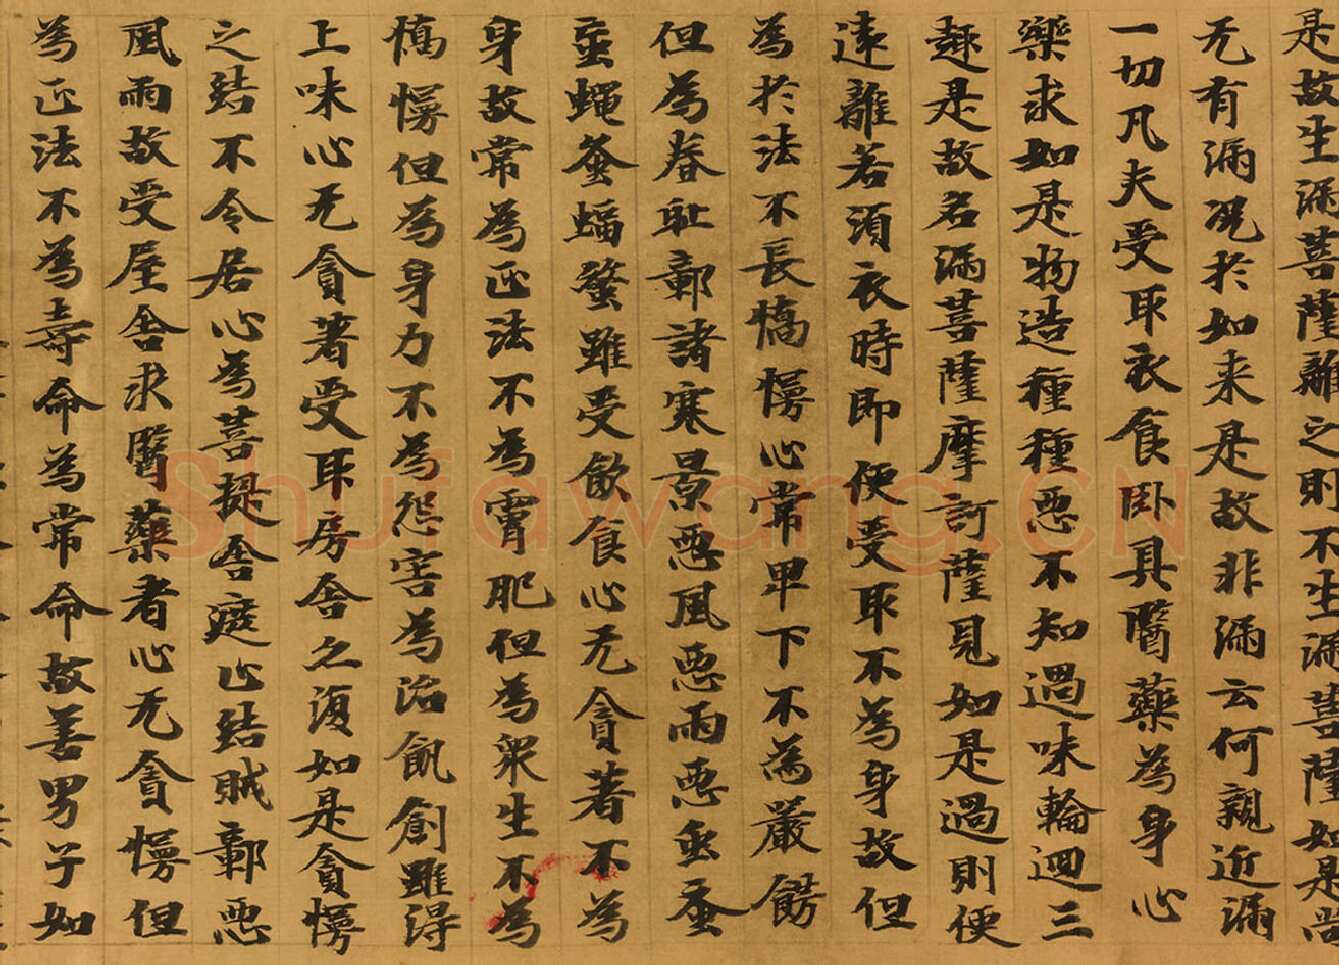 是故生漏菩薩離之則不生漏菩薩如是尚
无有漏况於如来是故非漏云何親近漏
一切凡夫受取衣食卧具醫藥為身心
樂求如是物造種種惡不知過味輪迴三
趣是故名漏菩薩摩訶薩見如是過則便
遠離若須衣時即便受取不為身故但
為於法不長憍慢心常卑下不為嚴餝
但為羞耻鄣諸寒暑惡風惡雨惡虫蚤
蝱蠅蚤蝠螫雖受飲食心无貪著不為
身故常為正法不為膚肥但為衆生不為
憍慢但為身力不為怨害為治飢創雖得
上味心无貪著受取房舍之須如是貪慢
之結不令居心為菩提舍遮止結賊鄣惡
風雨故受屋舍求醫藥者心无貪慢但
為正法不為壽命為常命故善男子如
Shufawang.CN